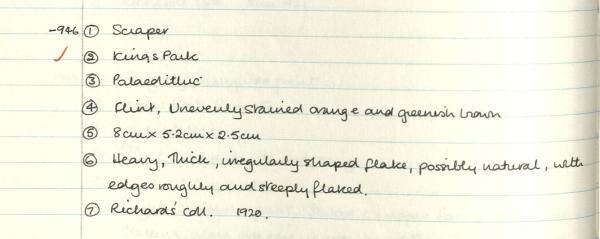 -946 ① Scraper
② Kings Park
③ Palaeolithic
④ Flint, Unevenly stained orange and greenish brown
⑤ 8cm x 5.2cm x 2.5cm
⑥ Heavy, thick, irregularly shaped flake, possibly natural, with
edges roughly and steeply flaked.
⑦ Richards' coll. 1920.